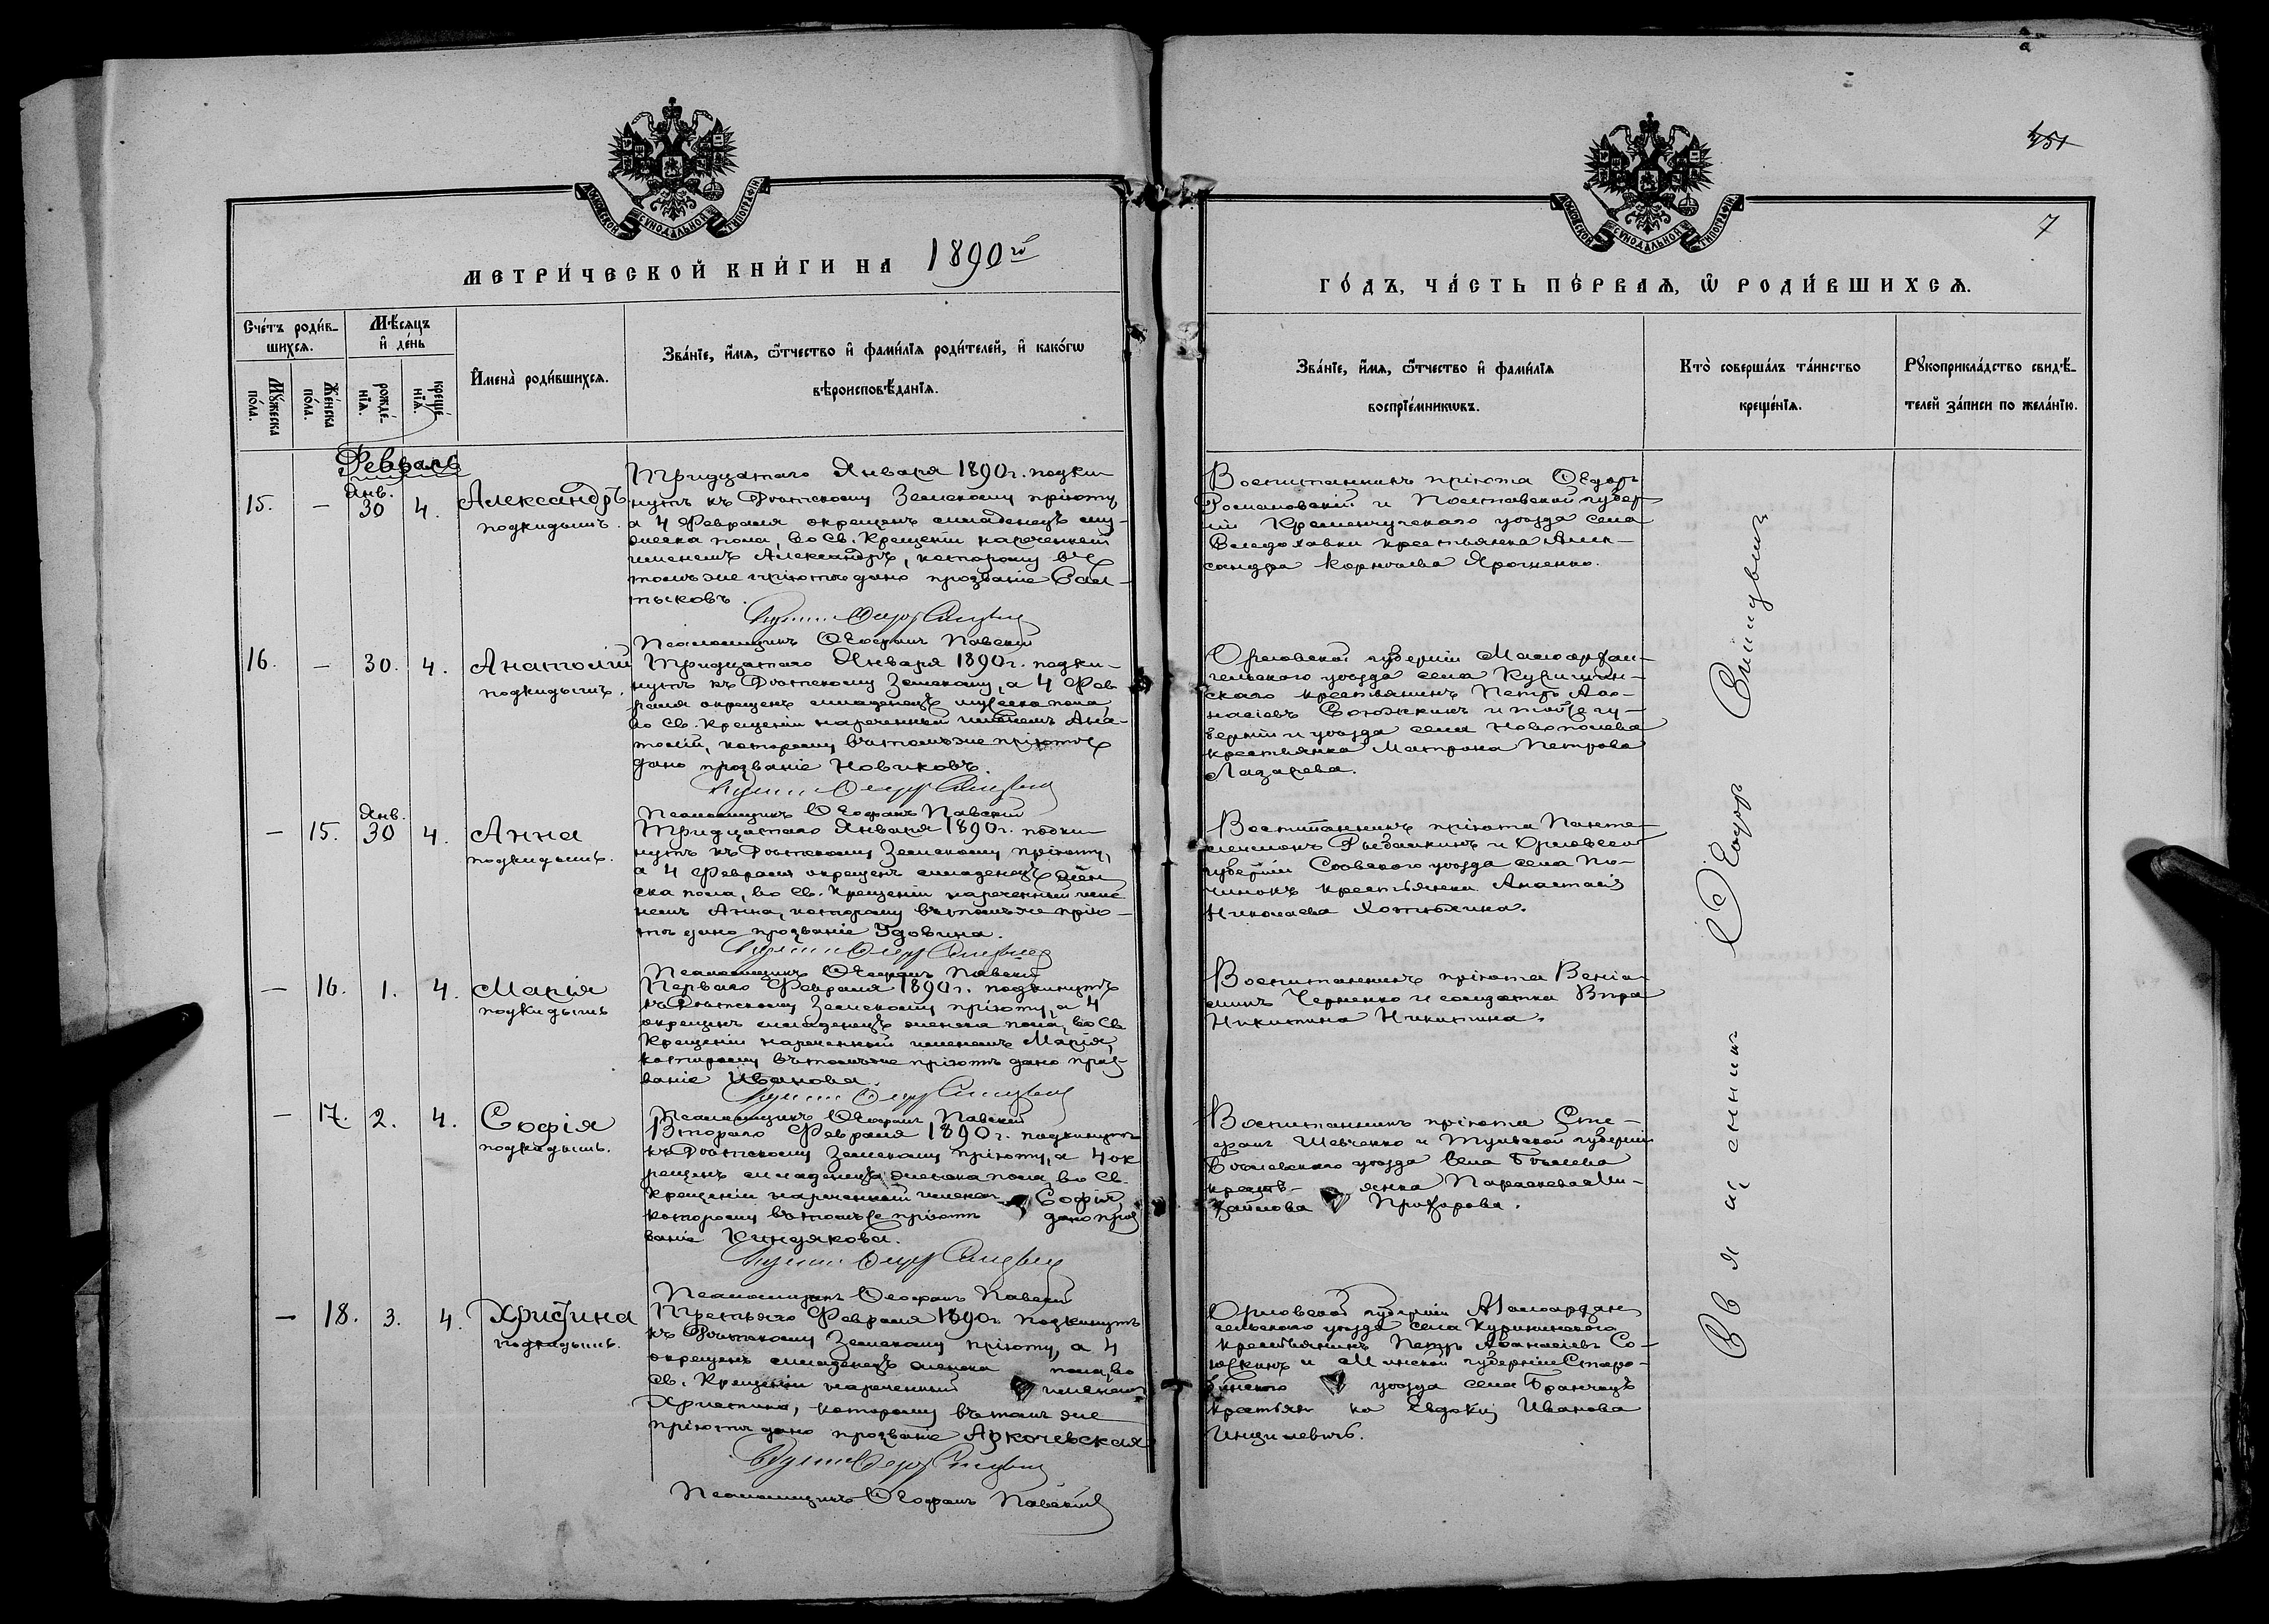 МОСКОВСКОЙ СѴНОДАЛЬНОЙ ТИПОГРАФІИ
МЕТРИ́ЧЕСКОЙ КНИ́ГИ НА 1890й
Сче́тъ роди́в-
шихся.
Мѣ́сяцъ
и҆ де́нь
Мꙋ́жеска
по́ла.
Же́нска
по́ла.
рожде́-
нїѧ.
креще́-
нїѧ.
И҆мена̀ роди́вшихсѧ.
Зва́нїе, и҆́мѧ, ѻ҆́тчество и҆ фами́лїѧ роди́телей, и҆ како́гѡ
вѣроисповѣ́данїѧ.
Февраль
15. — Янв. 30 4. Александръ
подкидышъ.
Тридцатаго Января 1890 г. подки
нутъ къ Земскому пріюту,
а 4 Февраля окрещенъ младенецъ му-
жеска пола, во Св. Крещеніи нареченный
именемъ Александръ, которому въ
томъ же пріютѣ дано прозваніе Сал-
тыковъ.
Псаломщикъ Ѳеофанъ Павскій
16. — 30. 4. Анатолій
подкидышъ.
Тридцатаго Января 1890 г. подки-
нутъ къ Земскому, а 4 Фев
раля окрещенъ младенецъ мужеска пола,
во Св. Крещеніи нареченный именемъ Ана-
толій, которому въ томъ же пріютѣ
дано прозваніе Новиковъ.
Псаломщикъ Ѳеофанъ Павскій
— 15. Янв. 30 4. Анна
подкидышъ.
Тридцатаго Января 1890 г. подки
нутъ къ Земскому пріюту,
а 4 Февраля окрещенъ младенецъ жен
ска пола, во Св. Крещеніи нареченный име
немъ Анна, которому въ томъ же прію-
тѣ дано прозваніе Удовина.
Псаломщикъ Ѳеофанъ Павскій
— 16. 1. 4. Марія
подкидышъ
Перваго Февраля 1890 г. подкинутъ
къ Земскому пріюту, а 4
окрещенъ младенецъ женска пола, во Св.
Крещеніи нареченный именемъ Марія,
которому въ томъ же пріютѣ дано проз
ваніе Иванова.
Псаломщикъ Ѳеофанъ Павскій
— 17. 2. 4. Софія
подкидышъ.
Втораго Февраля 1890 г. подкинутъ
къ Земскому пріюту, а 4 ок
рещенъ младенецъ женска пола, во Св.
Крещеніи нареченный именем Софія,
которому въ томъ же пріютѣ дано проз
ваніе Киндякова.
Псаломщикъ Ѳеофанъ Павскій
— 18. 3. 4. Христина
подкидышъ.
Третьяго Февраля 1890 г. подкинутъ
къ Земскому пріюту, а 4
окрещенъ младенецъ женска пола, во
Св. Крещеніи нареченный именемъ
Христина, которому въ томъ же
пріютѣ дано прозваніе Аркочевская
Псаломщикъ Ѳеофанъ Павскій
451
7
МОСКОВСКОЙ СѴНОДАЛЬНОЙ ТИПОГРАФІИ
ГО́ДЪ, ЧА́СТЬ ПЕ́РВАѦ, Ѡ҆ РОДИ́ВШИХСѦ.
Зва́нїе, и҆́мѧ, ѻ҆́тчество и҆ фами́лїѧ
воспрїе́мникѡвъ.
Кто̀ соверша́лъ та́инство
креще́нїѧ.
Рꙋкоприкла́дство свидѣ́-
телей за́писи по жела́нїю.
Воспитанникъ пріюта Ѳедоръ
Романовскій и Полтавской губер
ніи Кременчугскаго уѣзда села
крестьянка Алек-
сандра Корнѣева Ярошенко.
Орловской губерніи Малоархан-
гельскаго уѣзда села
крестьянинъ Петръ Аѳа-
насіевъ и той же гу-
берніи и уѣзда села Новополева
крестьянка Матрона Петрова
Лазарева.
Воспитанникъ пріюта Панте-
леимонъ и Орловской
губерніи Сѣвскаго уѣзда села По-
чинокъ крестьянка Анастасія
Николаева Хотылина.
Воспитанникъ пріюта Веніа-
минъ Черненко и солдатка Вѣра
Никитина Никитина.
Воспитанникъ пріюта Сте-
фанъ Шевченко и Тульской губерніи
Бѣлевскаго уѣзда села
крестьянка Параскева Ми-
хайлова Прохорова.
Орловской губерніи Малоархан
гельскаго уѣзда села
крестьянинъ Петръ Аѳанасіевъ
и Минской губерніи
уѣзда села
крестьянка Евдокія Иванова
Священникъ Ѳеодоръ